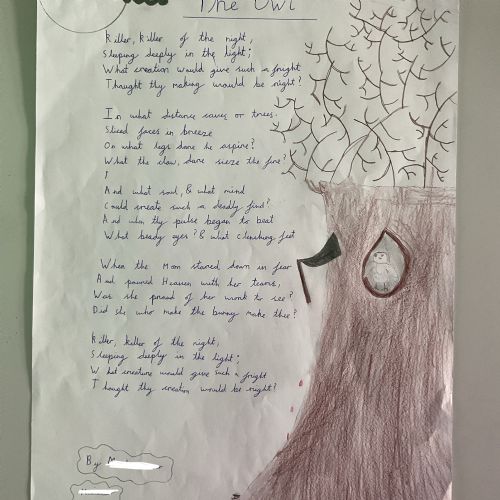 The Owl
Killer, killer of the night,
Sleeping deeply in the light;
What creation would give such a fright
Thought thy making would be right?
In what distance caves or trees.
Sliced faces in breeze
On what legs dare he aspire?
What the claw, dare sieze the fire?
I
And what soul, & what mind
Could create such a deadly find?
And when thy pulse began to beat
What beady eyes? & what clenching feet
When the Moon stared down in fear
And poured Heaven with her tears,
Was she proud of her work to see?
Did she who make the bunny make thee?
Killer, killer of the night,
Sleeping deeply in the light;
What creature would give such a fright
Thought thy creation would be right?
By